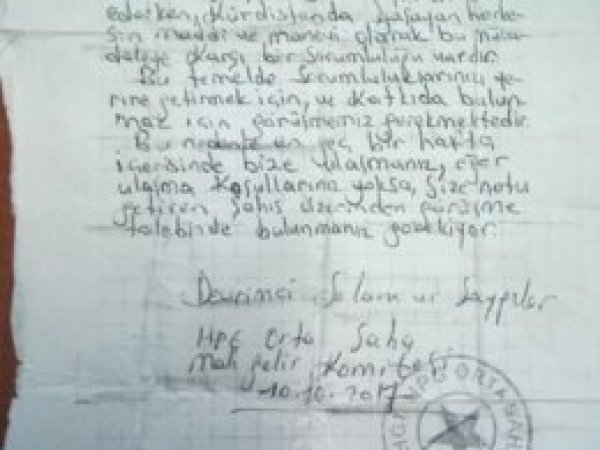 ederken, Kürdistanda yaşayan herke-
sin maddi ve manevi olarak bu müca-
deleye karşı bir sorumluluğu vardır.
Bu temelde sorumluluklarınızı ye-
rine getirmek için, ve katkıda bulun
maz için görüşmemiz gerekmektedir.
Bu nedenle en geç bir hafta
içerisinde bize ulaşmanız, eğer
ulaşma koşullarınız yoksa, size notu
getiren şahıs üzerinden görüşme
talebinde bulunmanız gerekiyor.
Devrimci Selam ve Saygılar
HPG Orta Saha
Mali gelir Komitesi
10.10.2017
HPG ORTA SAHA